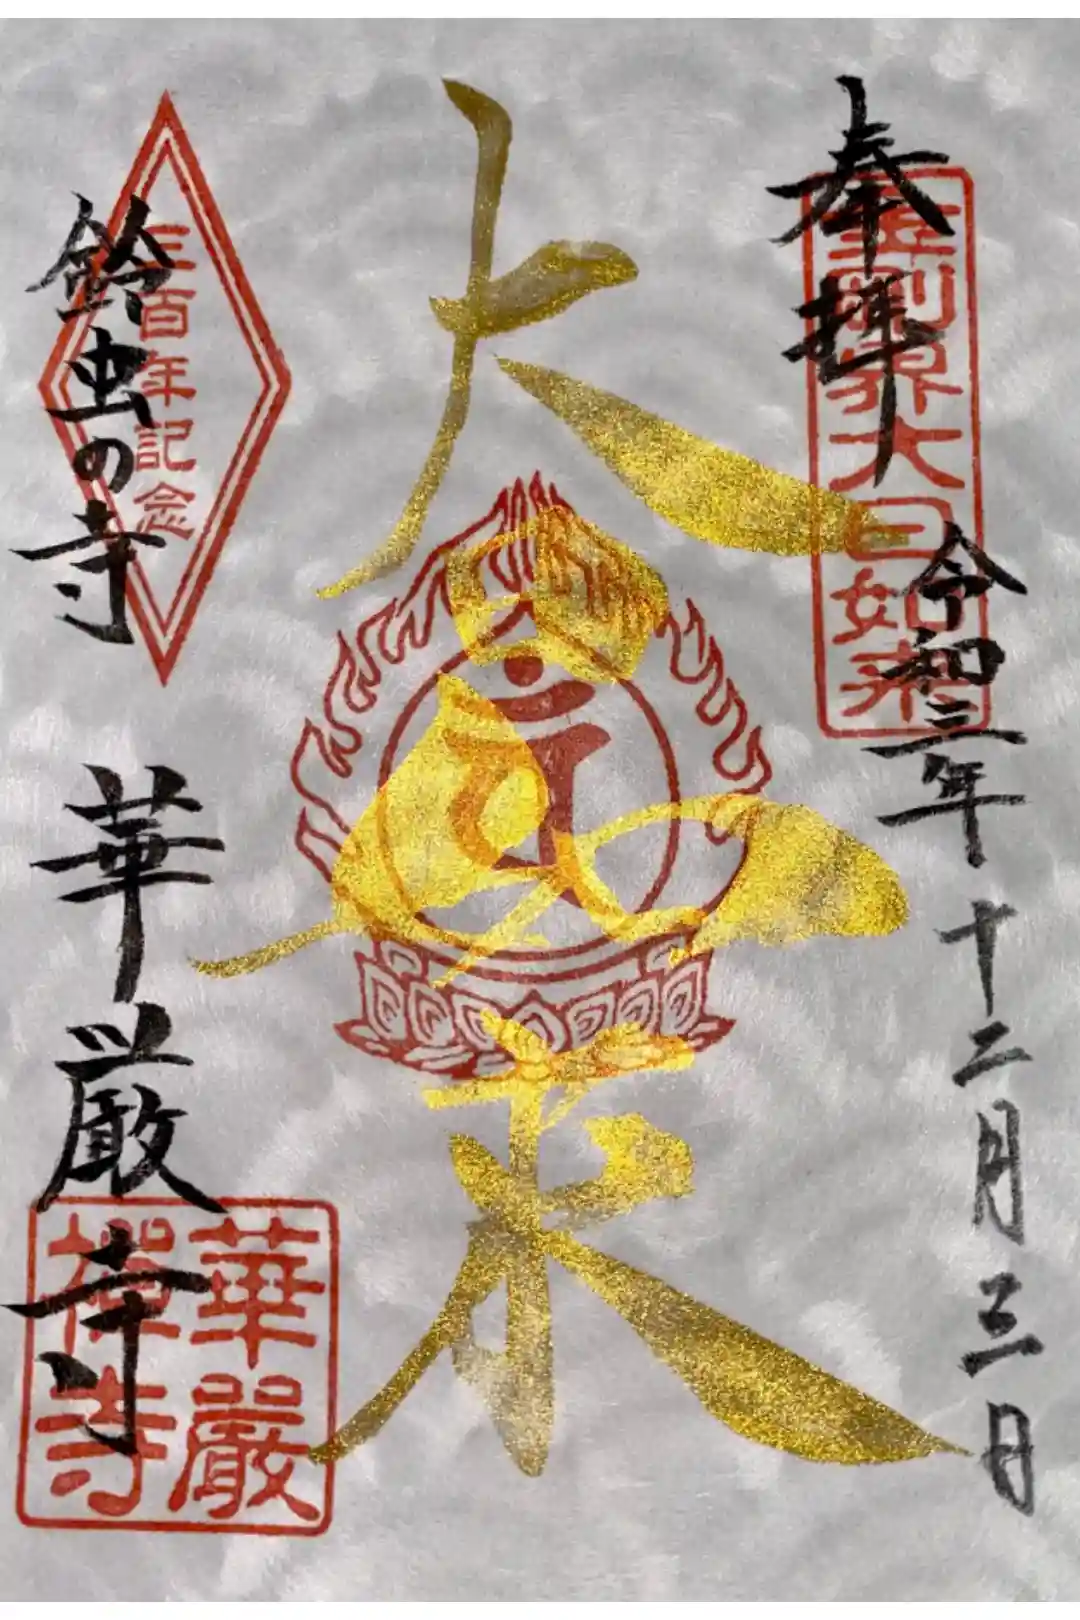 奉拝
金剛界大日如来
令和三年十二月三日
大日如来
三百年記念
鈴虫の寺
華厳寺
華嚴
禪寺